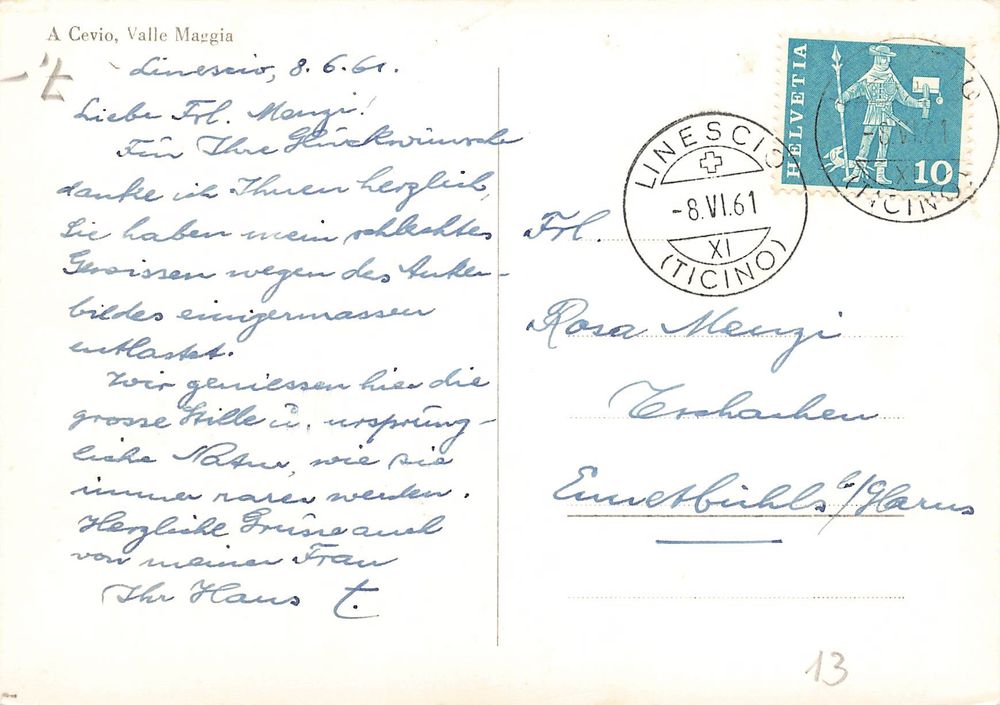 A Cevio, Valle Maggia
Linescio, 8.6.61.
Liebe Frl. Menzi!
Für Ihre Glückwünsche
danke ich Ihnen herzlich,
Sie haben mein schlechtes
Gewissen wegen des Anken-
bildes einigermassen
entlastet.
Wir geniessen hier die
grosse Stille u. ursprüng-
liche Natur, wie sie
immer rarer werden.
Herzliche Grüsse auch
von meiner Frau
Ihr Hans t.
HELVETIA
10
LINESCIO
-8.VI.61
XI
(TICINO)
-8.VI.61
XI
(TICINO)
Frl.
Rosa Menzi
Tschachen
Ennetbühls b/Glarus
13